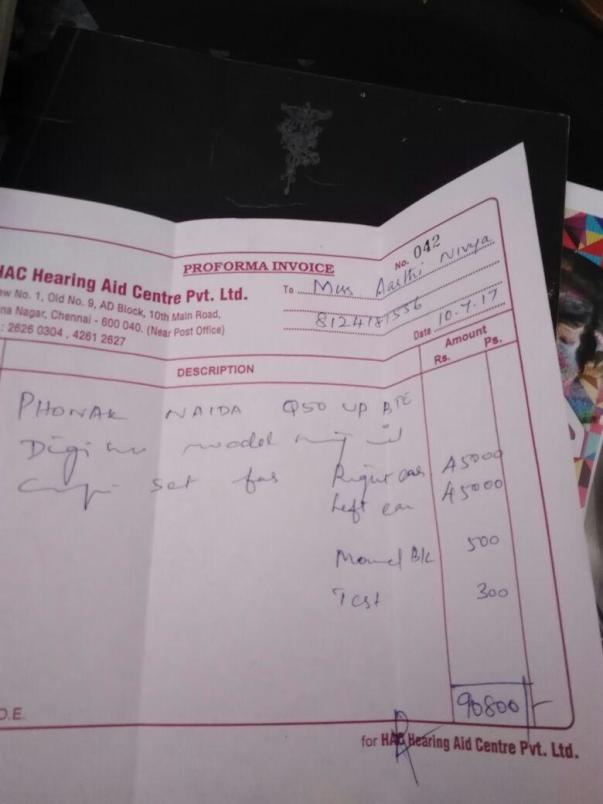 PROFORMA INVOICE
No. 042
HAC Hearing Aid Centre Pvt. Ltd.
ew No. 1, Old No. 9, AD Block, 10th Main Road,
na Nagar, Chennai - 600 040. (Near Post Office)
: 2626 0304 , 4261 2627
To Aarthi Nivya
8124181556
Date 10.7.17
DESCRIPTION
Amount
Rs. Ps.
PHONAK NAIDA Q50 UP BTE
Digi model
set for Right ear 45000
Left ear 45000
500
Test 300
90800/-
O.E.
for HAC Hearing Aid Centre Pvt. Ltd.